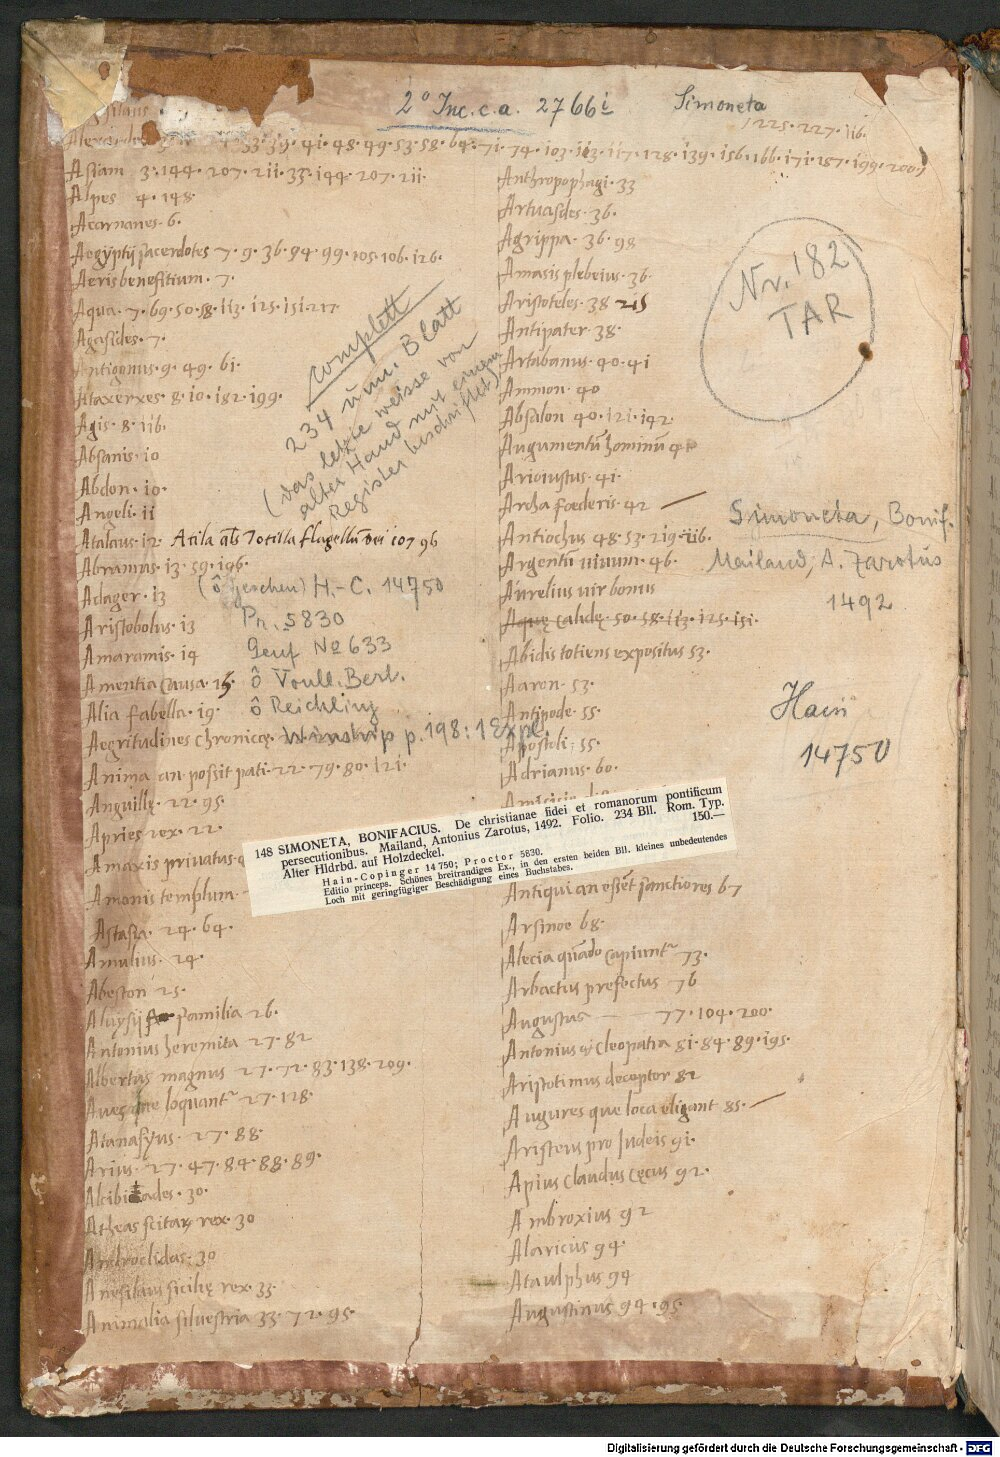 2° Inc. c. a. 2766i
Simoneta
225 · 227 · 116.
33 · 39 · 41 · 48 · 49 · 53 · 58 · 64 · 71 · 74 · 103 · 113 · 117 · 128 · 139 · 156 · 166 · 171 · 187 · 199 · 200
Asiam 3 · 144 · 207 · 211 · 33 · 144 · 207 · 211 ·
Alpes 4 · 148
Acarnanes · 6 ·
Aegyptij sacerdotes 7 · 9 · 36 · 94 · 99 · 105 · 106 · 126 ·
Aeris benefitium · 7 ·
Aqua · 7 · 69 · 50 · 58 · 113 · 125 · 151 · 217
Agasides · 7 ·
Antigonus · 9 · 49 · 61 ·
Ataxerxes · 8 · 10 · 182 · 199 ·
Agis · 8 · 116 ·
Absanis · 10
Abdon · 10 ·
Angeli · 11
Atalaus · 12 Atila
flagellum dei 107 96
Abramus · 13 · 59 · 196 ·
Adager · 13
Aristobolus · 13
Amaramis · 14
Amentia causa · 15
Alia fabella · 19 ·
Aegritudines chronicę ·
Anima an possit pati · 22 · 79 · 80 · 121 ·
Anguillę · 22 · 95 ·
Apries rex · 22 ·
Amaxis privatus ·
Amonis templum ·
Astasia · 24 · 64 ·
Amulius · 24 ·
Abeston 25 ·
Aluysij familia · 26 ·
Antonius heremita · 27 · 82
Albertus magnus 27 · 72 · 83 · 138 · 209 ·
Aves que loquant^r 27 · 128 ·
Atanasyus · 27 · 88 ·
Arius · 27 · 47 · 84 · 88 · 89 ·
Alcibiades · 30 ·
Atheas scitarum rex · 30
Androclidas · 30
Anesilaus sicilię rex · 33 ·
Animalia silvestria 33 · 72 · 95 ·
complett
234 unn. Blatt
(das letzte weisse von
alter Hand mit einem
Register beschriftet)
H.-C. 14750
Pr. 5830
Genf No 633
ô Voull. Berl.
ô Reichling
Winship p. 198: 1 Expl.
Anthropophagi · 33
Artuasdes · 36 ·
Agrippa · 36 · 98
Amasis plebeius · 36 ·
Aristoteles · 38 215
Antipater · 38 ·
Artabanus · 40 · 41
Ammon · 40
Absalon 40 · 121 · 142 ·
Augumentū hominū
Arioiustus · 41 ·
Archa fœderis · 42
Antiochus 48 · 53 · 219 · 116 ·
Argentū uiuum · 46 ·
Aurelius uir bonus
Aquę calidę · 50 · 58 · 113 · 125 · 151 ·
Abidis totiens expositus 53 ·
Aaron · 53 ·
Antipode · 55 ·
Apostoli · 55 ·
Adrianus · 60 ·
Antiqui an essēt sanctiores 67
Arsinoe 68 ·
Alecia quādo capiunt^r 73 ·
Arbactus prefectus 76
Augustus 77 · 104 · 200 ·
Antonius & cleopatra 81 · 84 · 89 · 195 ·
Aristotimus deceptor 82
Augures que loca eligant 85 ·
Aristeus pro Judeis 91 ·
Apius claudus cęcus 92 ·
Ambroxius 92
Alaricus 94 ·
Ataulphus 94
Augustinus 94 · 95 ·
Nr. 182
TAR
Simoneta, Bonif.
Mailand, A. Zarotus
1492
Hain
14750
148 SIMONETA, BONIFACIUS. De christianae fidei et romanorum pontificum
persecutionibus. Mailand, Antonius Zarotus, 1492. Folio. 234 Bll. Rom. Typ.
Alter Hldrbd. auf Holzdeckel. 150.—
Hain-Copinger 14750; Proctor 5830.
Editio princeps. Schönes breitrandiges Ex., in den ersten beiden Bll. kleines unbedeutendes
Loch mit geringfügiger Beschädigung eines Buchstabes.
Digitalisierung gefördert durch die Deutsche Forschungsgemeinschaft - DFG